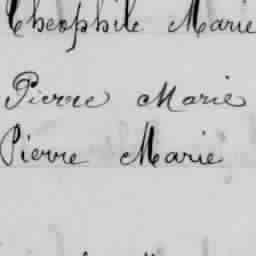 Theophile Marie
Pierre Marie
Pierre Marie